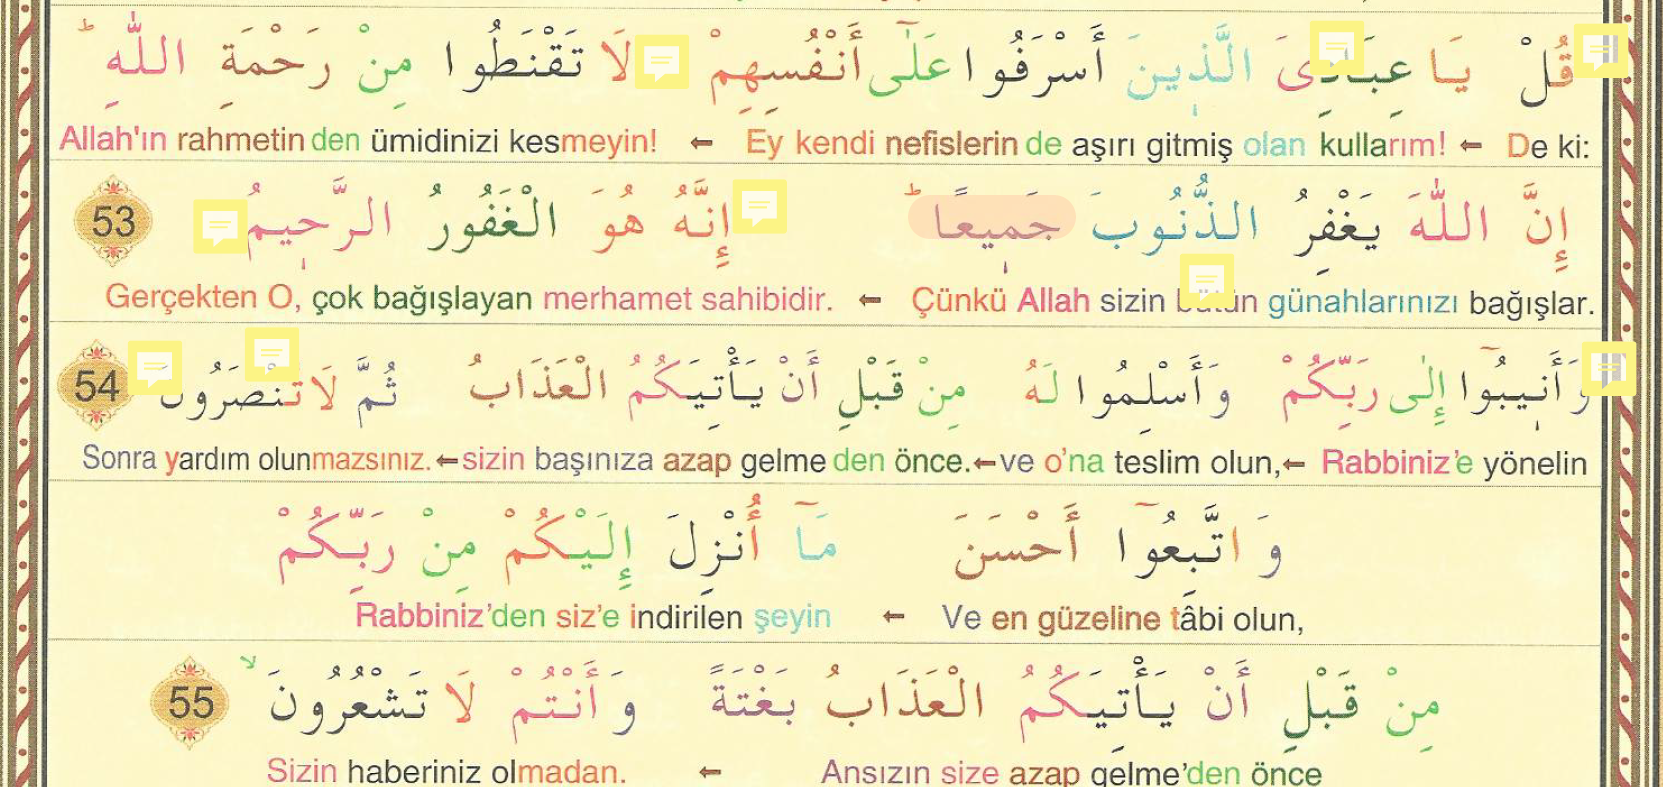 قُلْ يَا عِبَادِىَ الَّذِينَ أَسْرَفُوا عَلَٓى أَنْفُسِهِمْ لَا تَقْنَطُوا مِنْ رَحْمَةِ اللّٰهِ ط
De ki: ← Ey kendi nefislerinde aşırı gitmiş olan kullarım! ← Allah'ın rahmetinden ümidinizi kesmeyin!
إِنَّ اللّٰهَ يَغْفِرُ الذُّنُوبَ جَمِيعًا ط إِنَّهُ هُوَ الْغَفُورُ الرَّحِيمُ 53
Çünkü Allah sizin bütün günahlarınızı bağışlar. ← Gerçekten O, çok bağışlayan merhamet sahibidir.
وَأَنِيبُٓوا إِلٰى رَبِّكُمْ وَأَسْلِمُوا لَهُ مِنْ قَبْلِ أَنْ يَأْتِيَكُمُ الْعَذَابُ ثُمَّ لَا تُنْصَرُونَ 54
Rabbiniz’e yönelin ← ve o’na teslim olun, ← sizin başınıza azap gelmeden önce. ← Sonra yardım olunmazsınız.
وَاتَّبِعُٓوا أَحْسَنَ مَٓا أُنْزِلَ إِلَيْكُمْ مِنْ رَبِّكُمْ
Ve en güzeline tâbi olun, ← Rabbiniz’den siz’e indirilen şeyin
مِنْ قَبْلِ أَنْ يَأْتِيَكُمُ الْعَذَابُ بَغْتَةً وَأَنْتُمْ لَا تَشْعُرُونَ لا 55
Ansızın size azap gelme’den önce ← Sizin haberiniz olmadan.